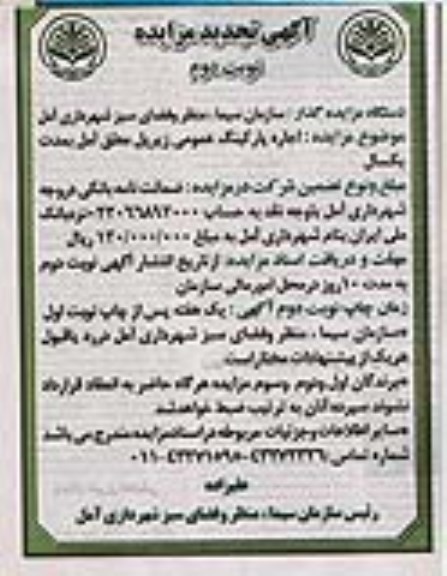 آگهی تجدید مزایده
نوبت دوم
دستگاه مزایده گذار : سازمان سیما ، منظر وفضای سبز شهرداری آمل
موضوع مزایده : اجاره پارکینگ عمومی زیرپل معلق آمل بمدت
یکسال
مبلغ ونوع تضمین شرکت در مزایده : ضمانت نامه بانکی دروجه
شهرداری آمل یاوجه نقد به حساب نزد بانک
ملی ایران بنام شهرداری آمل به مبلغ ۱۲۰/۰۰۰/۰۰۰ ریال
مهلت و دریافت اسناد مزایده: از تاریخ انتشار آگهی نوبت دوم
به مدت ۱۰روز درمحل امورمالی سازمان
زمان چاپ نوبت دوم آگهی : یک هفته پس از چاپ نوبت اول
*سازمان سیما ، منظر وفضای سبز شهرداری آمل دررد یاقبول
هریک از پیشنهادات مختاراست
*برندگان اول ودوم وسوم مزایده هرگاه حاضر به انعقاد قرارداد
نشوند سپرده آنان به ترتیب ضبط خواهدشد
*سایر اطلاعات وجزئیات مربوطه در اسنادمزایده مندرج می باشد
شماره تماس : ۰۱۱
علیزاده
رئیس سازمان سیما ، منظر وفضای سبز شهرداری آمل